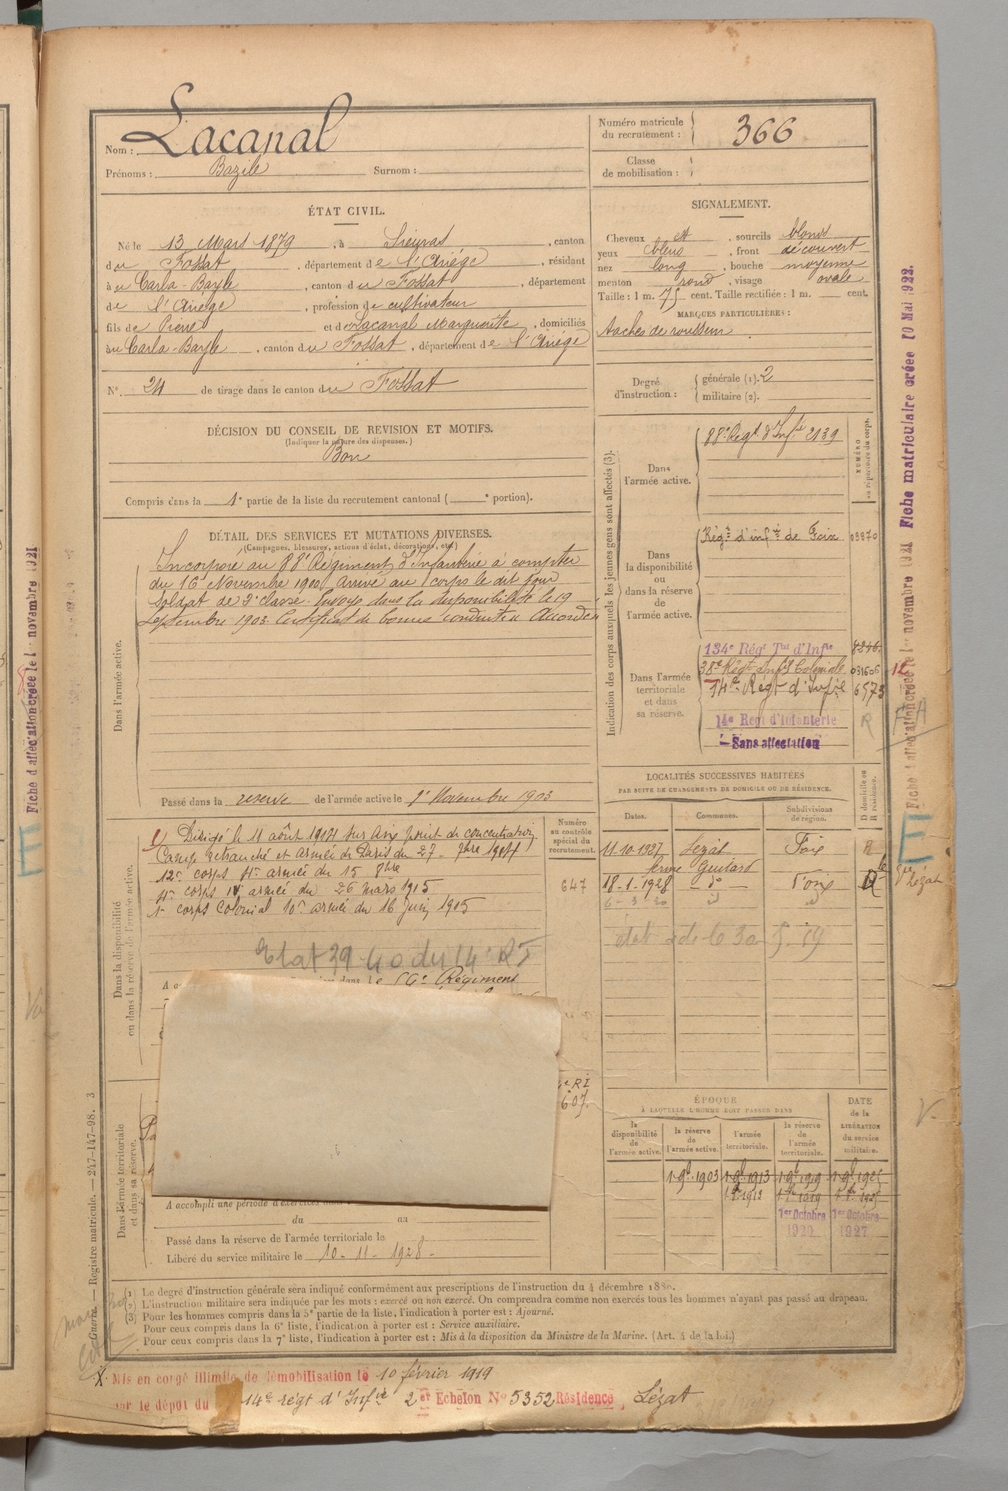 Nom : Lacanal
Prénoms : Bazile Surnom :
Numéro matricule du recrutement : 366
Classe de mobilisation :
ÉTAT CIVIL.
Né le 13 Mars 1879, à Sieuras, canton
du Fossat, département de l'Ariège, résidant
à u Carla-Bayle, canton du Fossat, département
de l'Ariège, profession de cultivateur
fils de Pierre et de Lacanal Marguerite, domiciliés
au Carla-Bayle, canton du Fossat, département de l'Ariège
N° 24 de tirage dans le canton du Fossat
SIGNALEMENT.
Cheveux et, sourcils blonds
yeux bleus, front découvert
nez long, bouche moyenne
menton rond, visage ovale
Taille : 1 m. 75 cent. Taille rectifiée : 1 m. cent.
MARQUES PARTICULIÈRES :
taches de rousseur
Degré d'instruction : générale (1). 2
militaire (2).
DÉCISION DU CONSEIL DE REVISION ET MOTIFS.
(Indiquer la nature des dispenses.)
Bon
Compris dans la 1e partie de la liste du recrutement cantonal ( e portion).
DÉTAIL DES SERVICES ET MUTATIONS DIVERSES.
(Campagnes, blessures, actions d'éclat, décorations, etc.)
Dans l'armée active.
Incorporé au 88e Régiment d'Infanterie à compter
du 16 Novembre 1900, Arrivé au corps le dit jour
Soldat de 2e classe. Envoyé dans la disponibilité le 19
Septembre 1903 Certificat de bonne conduite "Accordé"
Passé dans la réserve de l'armée active le 1er Novembre 1903
Indication des corps auxquels les jeunes gens sont affectés (3).
NUMÉRO au répertoire du corps.
Dans l'armée active.
88e Régt d'Infie 2139
Dans la disponibilité ou dans la réserve de l'armée active.
Régt d'infie de Foix 03870
Dans l'armée territoriale et dans sa réserve.
134e Régt Tal d'Infie 8246
38e Régt Infie Coloniale 031606
14e Régt d'Infie 6573
14e Regt d'Infanterie R
Sans affectation
Dans la disponibilité ou dans la réserve de l'armée active.
Dirigé le 11 août 1914 sur Aix point de concentration
Camp retranché et armée de Paris du 27 - 7bre 1914
12e corps 4e armée du 15 8bre
4e corps IV armée du 26 mars 1915
1er corps Colonial 10e armée du 16 juin 1915
Etat 39-40 du 14e RI
dans le Régiment
Numéro au contrôle spécial du recrutement.
647
LOCALITÉS SUCCESSIVES HABITÉES
PAR SUITE DE CHANGEMENTS DE DOMICILE OU DE RÉSIDENCE.
Dates. Communes. Subdivisions de région. D domicile ou R résidence.
11-10-1927 Lézat Foix R
ferme Guitard
18-1-1928 do Foix
RI
607.
ÉPOQUE
À LAQUELLE L'HOMME DOIT PASSER DANS
la disponibilité de l'armée active. la réserve de l'armée active. l'armée territoriale. la réserve de l'armée territoriale. DATE de la LIBÉRATION du service militaire.
1 9b 1903 1 9b 1913 1 9b 1919 1 9b 1925
1er Octobre 1920 1er Octobre 1927
Dans l'armée territoriale et dans sa réserve.
A accompli une période d'exercices dans
du au
Passé dans la réserve de l'armée territoriale le
Libéré du service militaire le 10-11-1928
(1) Le degré d'instruction générale sera indiqué conformément aux prescriptions de l'instruction du 4 décembre 1889.
(2) L'instruction militaire sera indiquée par les mots : exercé ou non exercé. On comprendra comme non exercés tous les hommes n'ayant pas passé au drapeau.
(3) Pour les hommes compris dans la 5e partie de la liste, l'indication à porter est : Ajourné.
Pour ceux compris dans la 6e liste, l'indication à porter est : Service auxiliaire.
Pour ceux compris dans la 7e liste, l'indication à porter est : Mis à la disposition du Ministre de la Marine. (Art. 4 de la loi.)
X. Mis en congé illimité de démobilisation le 10 février 1919
par le dépot du 14e régt d'Infie 2e Echelon N° 5352 Résidence, Lézat
Guerre. — Registre matricule. — 247-147-98. 3
Fiche d'affectation créée le 1er novembre 1921
Fiche d'affectation créée le 1er novembre 1921 Fiche matriculaire créée 10 Mai 1922.
E
E